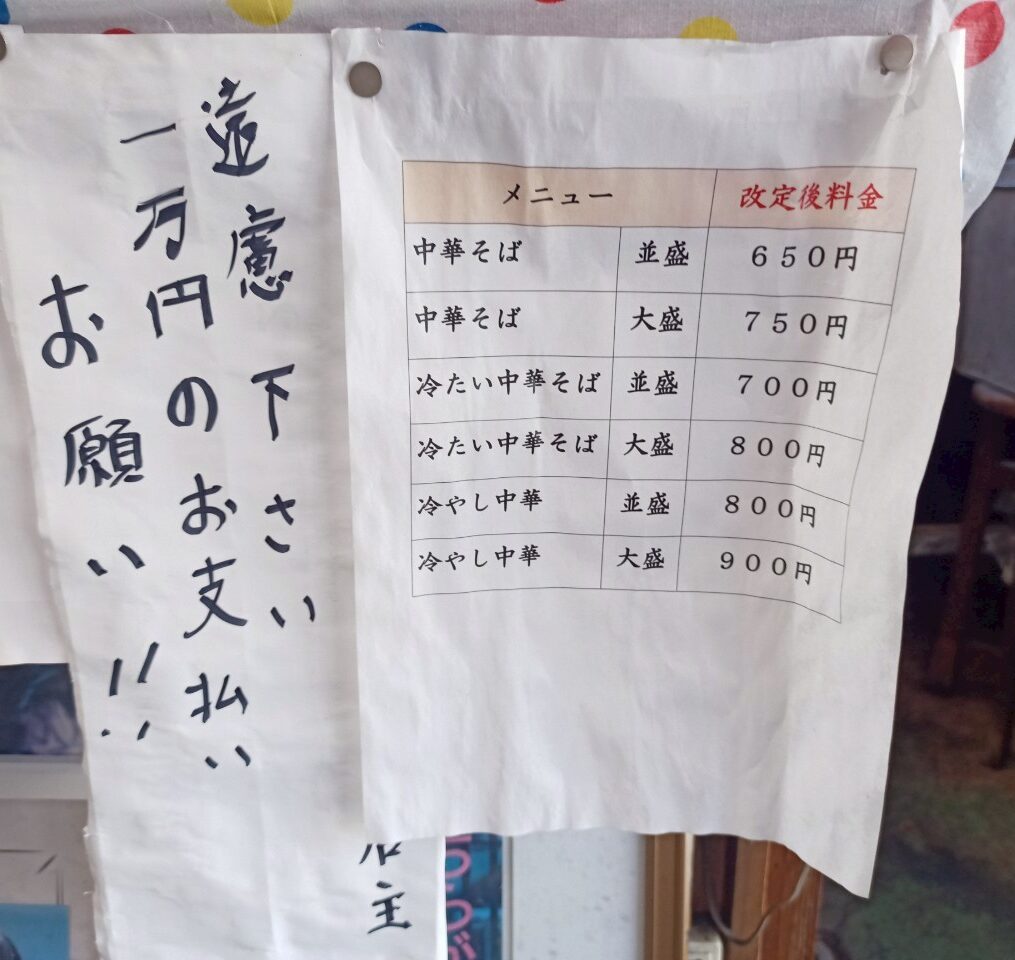 メニュー 改定後料金
中華そば 並盛 650円
中華そば 大盛 750円
冷たい中華そば 並盛 700円
冷たい中華そば 大盛 800円
冷やし中華 並盛 800円
冷やし中華 大盛 900円
遠慮下さい
一万円のお支払い
お願い!!
店主